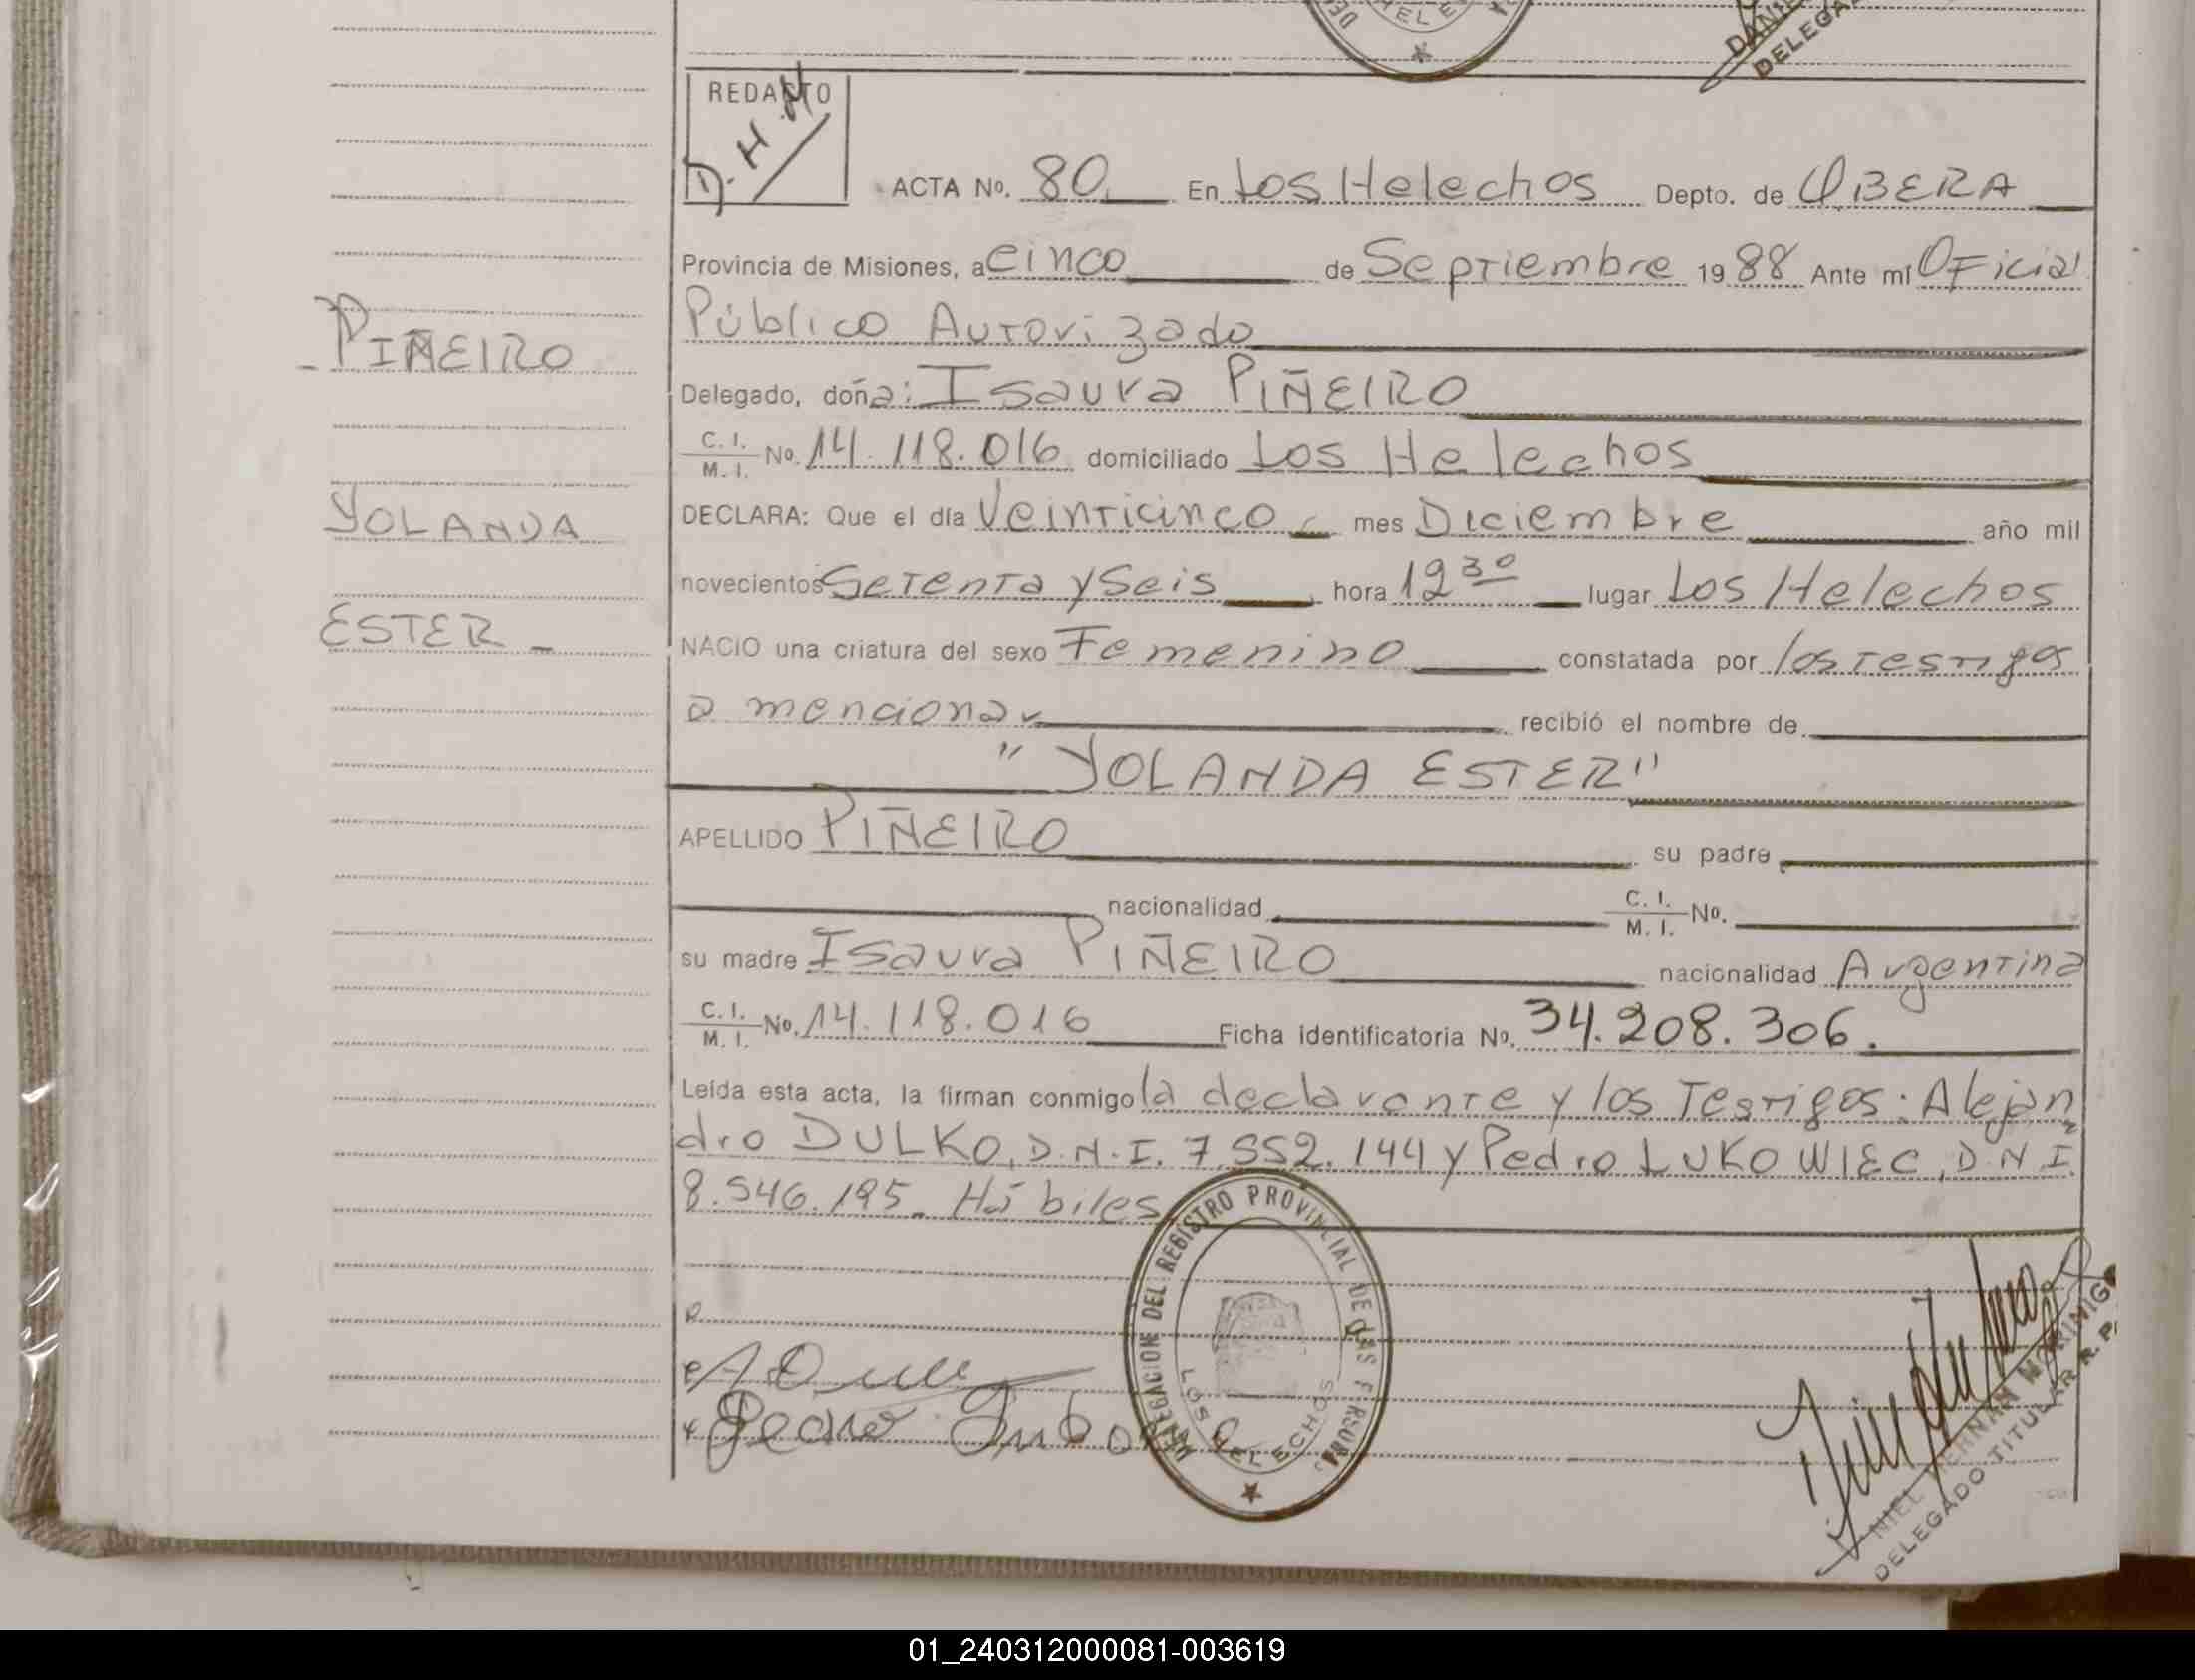 HELE
DANIE
DELEGA
REDACTO
D.H.M
ACTA No. 80 En Los Helechos Depto. de OBERA
Provincia de Misiones, a cinco de Septiembre 1988 Ante mí Oficial
Público Autorizado
PIÑEIRO
Delegado, doña: Isaura PIÑEIRO
C. I. / M. I. No. 14.118.016 domiciliado Los Helechos
YOLANDA
DECLARA: Que el día Veinticinco mes Diciembre año mil
novecientos Setenta y Seis hora 12 30 lugar Los Helechos
ESTER -
NACIO una criatura del sexo Femenino constatada por los testigos
a mencionar recibió el nombre de
"YOLANDA ESTER"
APELLIDO PIÑEIRO su padre
nacionalidad C. I. / M. I. No.
su madre Isaura PIÑEIRO nacionalidad Argentina
C. I. / M. I. No. 14.118.016 Ficha identificatoria No. 34.208.306.
Leída esta acta, la firman conmigo la declarante y los Testigos: Alejan
dro DULKO, D.N.I. 7.552.144 y Pedro LUKOWIEC, D.N.I.
8.546.195. Hábiles
DELEGACION DEL REGISTRO PROVINCIAL DE LAS PERSONAS
LOS HELECHOS
Pedro
DELEGADO TITULAR R. P.
01_240312000081-003619